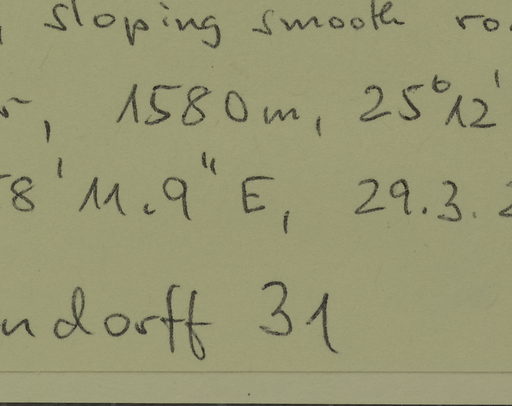 , sloping smooth ro
r, 1580m, 25°12'
58' 11.9" E, 29.3.2
ndorff 31